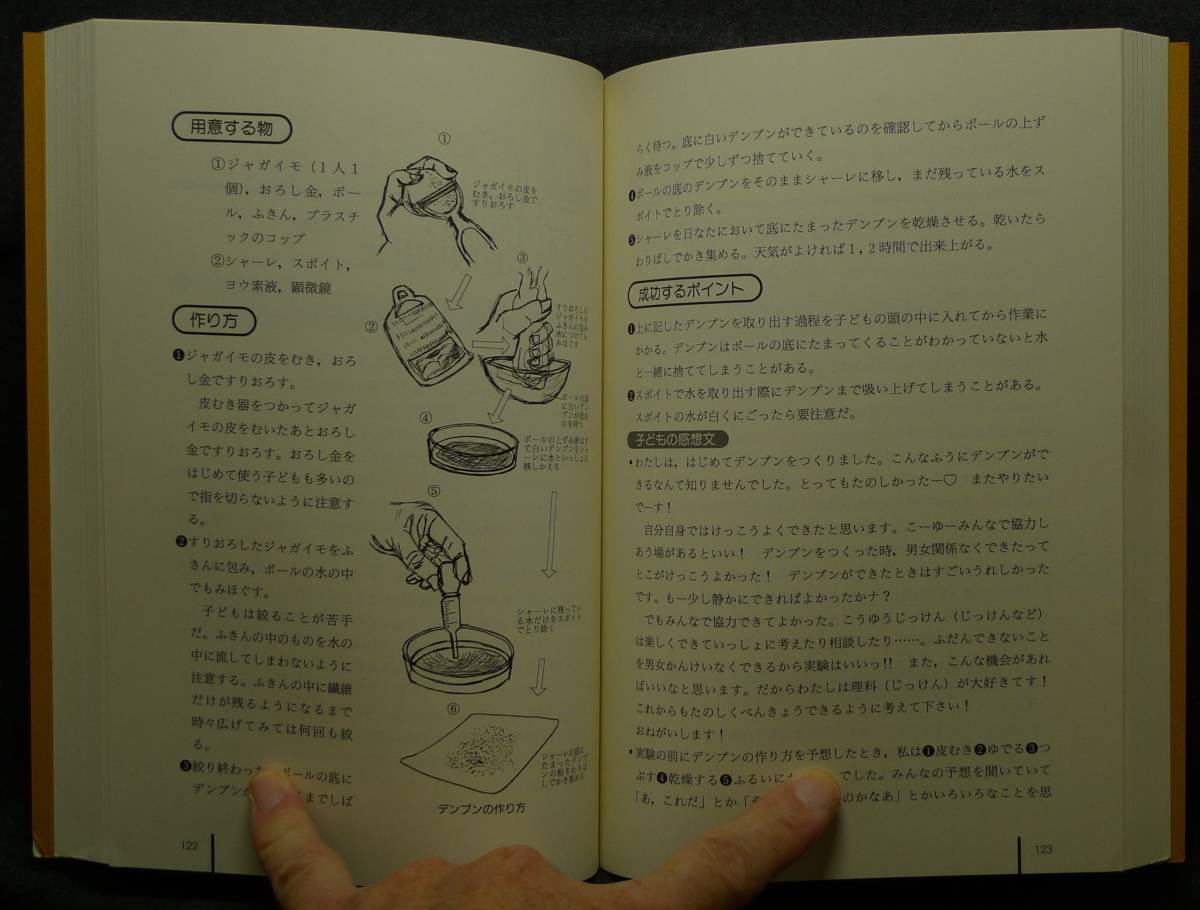 用意する物
①ジャガイモ(1人1
個),おろし金,ボー
ル,ふきん,プラスチ
ックのコップ
②シャーレ,スポイト,
ヨウ素液,顕微鏡
作り方
❶ジャガイモの皮をむき,おろ
し金ですりおろす。
皮むき器をつかってジャガ
イモの皮をむいたあとおろし
金ですりおろす。おろし金を
はじめて使う子どもも多いの
で指を切らないように注意す
る。
❷すりおろしたジャガイモをふ
きんに包み,ボールの水の中
でもみほぐす。
子どもは絞ることが苦手
だ。ふきんの中のものを水の
中に流してしまわないように
注意する。ふきんの中に繊維
だけが残るようになるまで
時々広げてみては何回も絞
る。
❸絞り終わった ボールの底に
デンプンが までしば
①
ジャガイモの皮を
むき,おろし金で
すりおろす
②
③
すりおろした
ジャガイモを
ふきんに包み
水につけても
みほぐす
ボールの底
に白いデン
プンが
のを待つ
④
ボールの上ずみ液はす
て白いデンプンをシャ
ーレに水といっしょに
移しかえる
⑤
シャーレに残ってい
る水だけをスポイト
でとり除く
⑥
シャーレの底に
たまったデンプ
ンの粉をわりば
しでかき集める
デンプンの作り方
122
らく待つ。底に白いデンプンができているのを確認してからボールの上ず
み液をコップで少しずつ捨てていく。
❹ボールの底のデンプンをそのままシャーレに移し,まだ残っている水をス
ポイトでとり除く。
❺シャーレを日なたにおいて底にたまったデンプンを乾燥させる。乾いたら
わりばしでかき集める。天気がよければ1,2時間で出来上がる。
成功するポイント
❶上に記したデンプンを取り出す過程を子どもの頭の中に入れてから作業に
かかる。デンプンはボールの底にたまってくることがわかっていないと水
と一緒に捨ててしまうことがある。
❷スポイトで水を取り出す際にデンプンまで吸い上げてしまうことがある。
スポイトの水が白くにごったら要注意だ。
子どもの感想文
・わたしは,はじめてデンプンをつくりました。こんなふうにデンプンがで
きるなんて知りませんでした。とってもたのしかったー♡ またやりたい
でーす!
自分自身ではけっこうよくできたと思います。こーゆーみんなで協力し
あう場があるといい! デンプンをつくった時,男女関係なくできたって
とこがけっこうよかった! デンプンができたときはすごいうれしかった
です。もー少し静かにできればよかったかナ?
でもみんなで協力できてよかった。こうゆうじっけん(じっけんなど)
は楽しくできていっしょに考えたり相談したり……。ふだんできないこと
を男女かんけいなくできるから実験はいいっ!! また,こんな機会があれ
ばいいなと思います。だからわたしは理科(じっけん)が大好きてす!
これからもたのしくべんきょうできるように考えて下さい!
おねがいします!
・実験の前にデンプンの作り方を予想したとき,私は❶皮むき❷ゆでる❸つ
ぶす❹乾燥する❺ふるいに でした。みんなの予想を聞いていて
「あ,これだ」とか「 のかなあ」とかいろいろなことを思
123